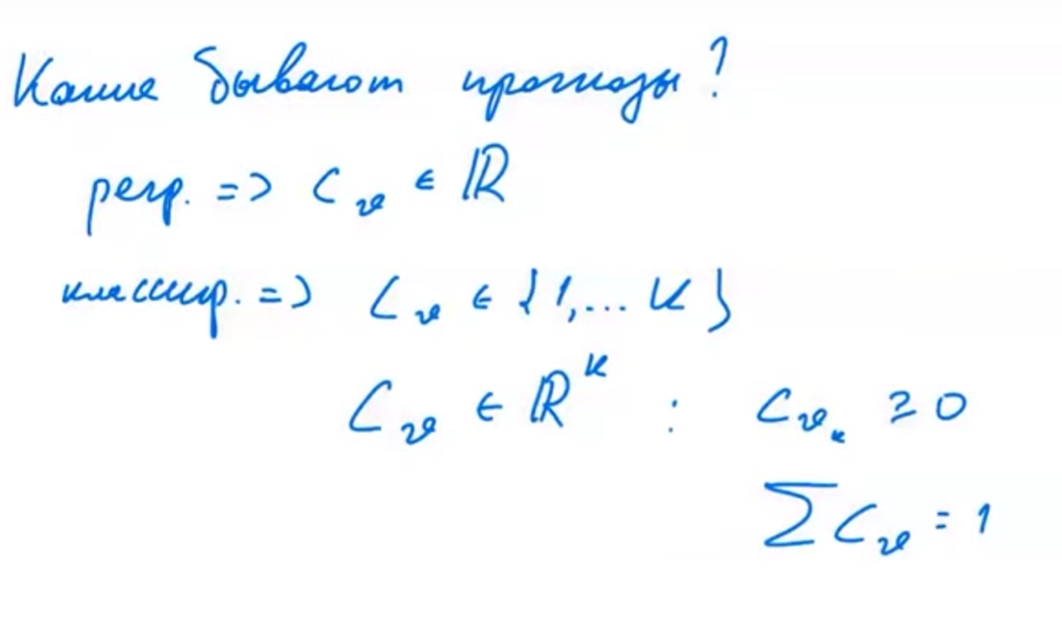 Какие бывают прогнозы?
регр. => C_v ∈ ℝ
классиф. => C_v ∈ {1,... K}
C_v ∈ ℝ^K : C_{v_k} ≥ 0
∑ C_v = 1